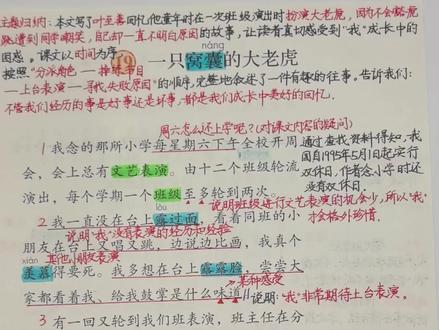 主题归纳：本文写了叶至善回忆他童年时在一次班级演出时扮演大老虎，因为不会豁虎
跳遭到同学嘲笑，自己却一直不明白原因的故事，让读者真切感受到"我"成长中的
困惑。课文以时间为序
按照"分派角色—排练节目
—上台表演—寻找失败原因"的顺序，完整地叙述了一件有趣的往事，告诉我们：
不管我们经历的事是好事还是坏事，都是我们成长中美好的回忆。
19
nāng
一只窝囊的大老虎
周六怎么还上学呢？(对课文内容的疑问)
1 我念的那所小学每星期六下午全校开周
会，会上总有文艺表演。由十二个班级轮流
演出，每个学期一个班级至多轮到两次。
通过查找资料得知，我
国自1995年5月1日起实行
双休日，作者念小学时还
没有双休日。
说明班级进行文艺表演的机会少，所以"我"
才会格外珍惜。
lòu
2 我一直没在台上露过面，看着同班的小
说明"我"没有表演的经历和经验
朋友在台上又唱又跳，边说边比画，我真个
xiàn
其他小朋友表演
羡慕得要死。我多想在台上露露脸，尝尝大
某种感受
家都看着我、给我鼓掌是什么味道
说明"我"非常期待上台表演。
3 有一回又轮到我们班表演，班主任在分